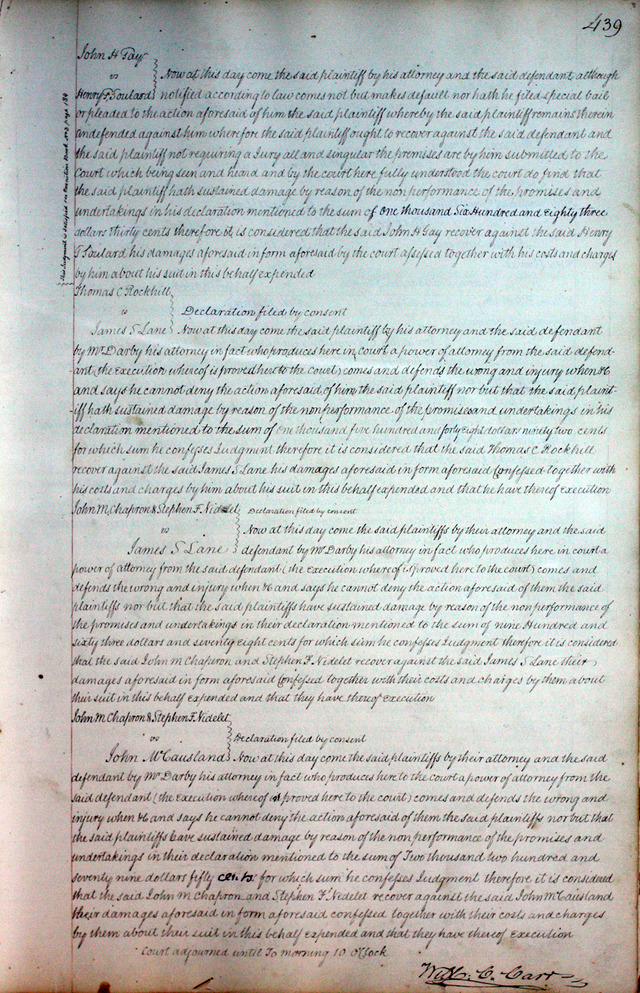 439
John H Gay
vs
Now at this day come the said plaintiff by his attorney and the said defendant although
Henry G Soulard notified according to law comes not but makes default nor hath he filed special bail
or pleaded to the action aforesaid of him the said plaintiff whereby the said plaintiff remains therein
undefended against him wherefore the said plaintiff ought to recover against the said defendant and
the said plaintiff not requiring a Jury all and singular the premises are by him submitted to the
Court which being seen and heard and by the court here fully understood the court do find that
the said plaintiff hath sustained damage by reason of the non performance of the promises and
undertakings in his declaration mentioned to the sum of one thousand Six Hundred and eighty three
dollars thirty cents therefore it is considered that the said John H Gay recover against the said Henry
G Soulard his damages aforesaid in form aforesaid by the court assessed together with his costs and charges
by him about his suit in this behalf expended
this Judgment is satisfied see Execution Book page
Thomas C Rockhill
vs
Declaration filed by consent
James S Lane Now at this day come the said plaintiff by his attorney and the said defendant
by Mr Darby his attorney in fact who produces here in court a power of attorney from the said defend-
ant (the execution whereof is proved here to the court) comes and defends the wrong and injury when &c
and says he cannot deny the action aforesaid of him the said plaintiff nor but that the said plaint-
iff hath sustained damage by reason of the nonperformance of the promises and undertakings in his
declaration mentioned to the sum of one thousand five hundred and forty eight dollars ninety two cents
for which sum he confesses Judgment therefore it is considered that the said Thomas C Rockhill
recover against the said James S Lane his damages aforesaid in form aforesaid Confessed together with
his costs and charges by him about his suit in this behalf expended and that he have thereof execution
John M, Chapron & Stephen F. Nidelet Declaration filed by consent
vs
Now at this day come the said plaintiffs by their attorney and the said
James S Lane defendant by Mr Darby his attorney in fact who produces here in court a
power of attorney from the said defendant (the execution whereof is proved here to the court) comes and
defends the wrong and injury when &c and says he cannot deny the action aforesaid of them the said
plaintiffs nor but that the said plaintiffs have sustained damage by reason of the nonperformance of
the promises and undertakings in their declaration mentioned to the sum of nine Hundred and
sixty three dollars and seventy eight cents for which sum he confesses Judgment therefore it is considered
that the said John M Chapron and Stephen F. Nidelet recover against the said James S Lane their
damages aforesaid in form aforesaid Confessed together with their costs and charges by them about
their suit in this behalf expended and that they have thereof execution
John M Chapron & Stephen F. Nidelet
vs
Declaration filed by consent
John McCausland Now at this day come the said plaintiffs by their attorney and the said
defendant by Mr Darby his attorney in fact who produces here to the court a power of attorney from the
said defendant (the execution whereof is proved here to the court) comes and defends the wrong and
injury when &c and says he cannot deny the action aforesaid of them the said plaintiffs nor but that
the said plaintiffs have sustained damage by reason of the non performance of the promises and
undertakings in their declaration mentioned to the sum of Two thousand two hundred and
seventy nine dollars fifty cents for which sum he confesses Judgment therefore it is considered
that the said John M Chapron and Stephen F. Nidelet recover against the said John McCausland
their damages aforesaid in form aforesaid confessed together with their costs and charges
by them about their suit in this behalf expended and that they have thereof execution
Court adjourned until To morning 10 O'lock
Willm. C. Carr